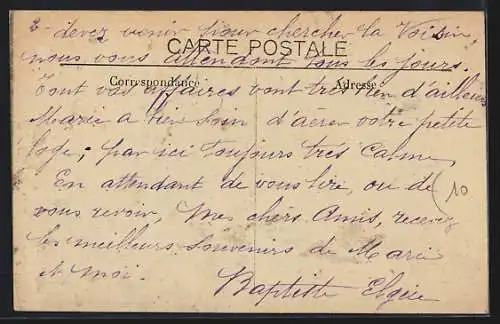 2- devez venir pour chercher la Voisin,
CARTE POSTALE
nous vous attendont tous les jours.
Correspondance Adresse
Tout vas affaires vont très bien d'ailleurs
Marie a bien soin d'aérer votre petite
loge; par ici toujours très Calme,
En attendant de vous lire, ou de
vous revoir, Mes chers Amis, recevez
10
les meilleurs souvenirs de Marie
et moi.
Baptiste